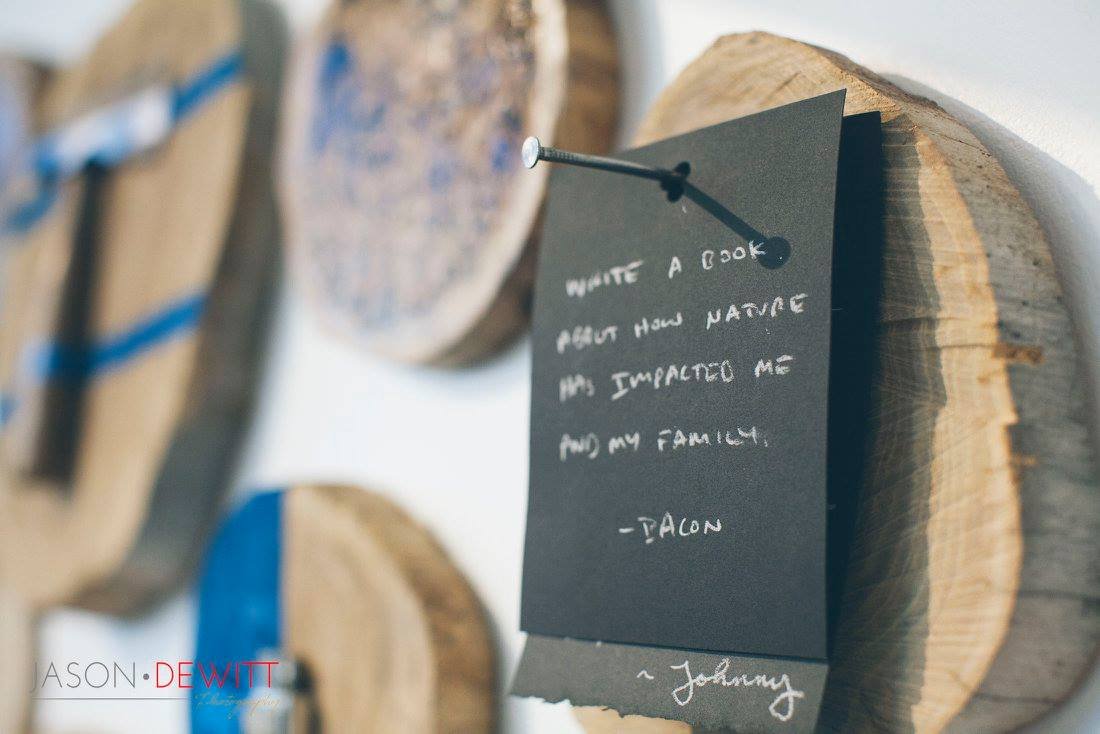 WRITE A BOOK
ABOUT HOW NATURE
HAS IMPACTED ME
AND MY FAMILY.
-BACON
~ Johnny
JASON•DEWITT
Photography